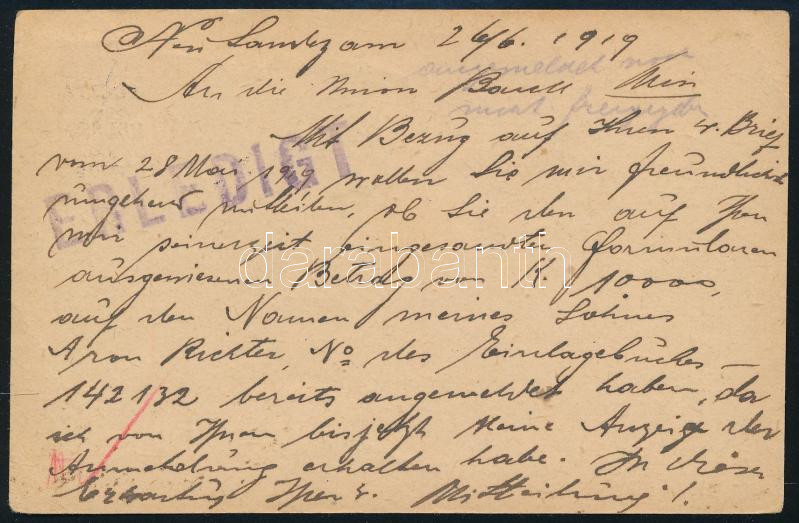 Neu Sandez am 26/6. 1919
angemeldet
An die Union Bank Wien
nicht
Mit Bezug auf Ihren w. Brief
vom 28 Mai 1919 wollen Sie mir freundlichst
ERLEDIGT
umgehend mitteilen, ob Sie den auf Ihren
mir seinerzeit eingesandten Formularen
darabanth
ausgewiesenen Betrag von K. 10000,
auf den Namen meines Sohnes
Aron Richter, No des Einlagebuches –
142132 bereits angemeldet haben, da
ich von Ihnen bisjetzt keine Anzeige der
Anmeldung erhalten habe. In dieser
Erwartung Ihrer w. Mitteilung!